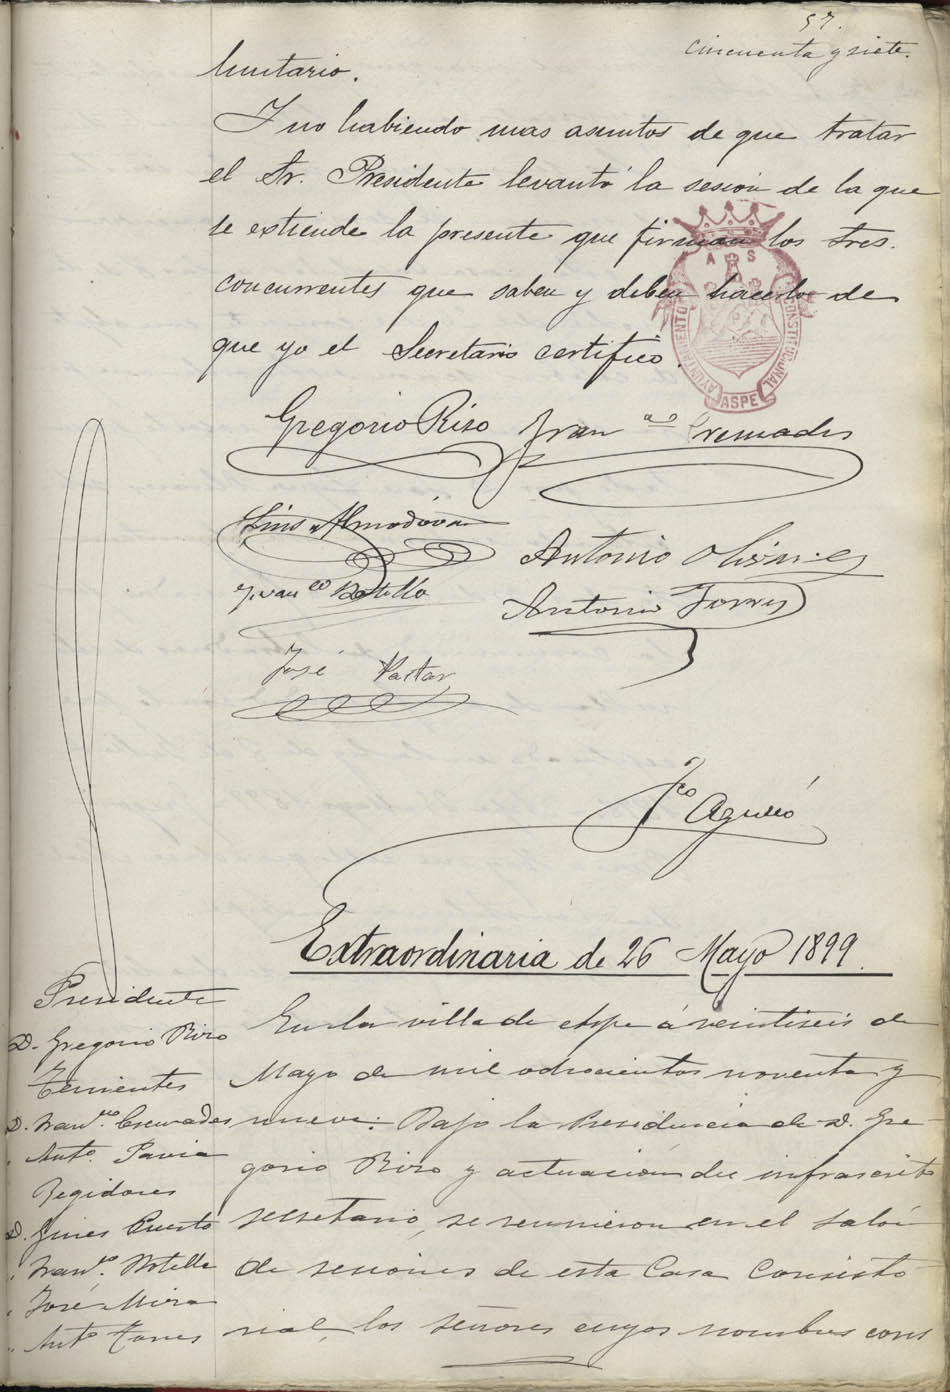 57.
cincuenta y siete.
luntario.
Y no habiendo mas asuntos de que tratar
el Sr. Presidente levantó la sesión de la que
se extiende la presente que firman los Sres.
concurrentes que saben y deben hacerlo de
que yo el Secretario certifico.
A S
AYUNTAMIENTO CONSTITUCIONAL
ASPE
Gregorio Rizo Franco Cremades
Luis Almodóvar
Antonio Olivares
Franco Botella
Antonio Torres
José Pastor
Fco Agulló
Extraordinaria de 26 Mayo 1899.
Presidente
D. Gregorio Rizo
Tenientes
D. Franco. Cremades
" Anto. Pavia
Regidores
D. Gines Puerto
" Franco. Botella
" José Mira
" Anto Torres
En la villa de Aspe á veintiseis de
Mayo de mil ochocientos noventa y
nueve: Bajo la Presidencia de D. Gre-
gorio Rizo y actuación del infrascrito
secretario, se reunieron en el salón
de sesiones de esta Casa Consisto
rial, los señores cuyos nombres cons